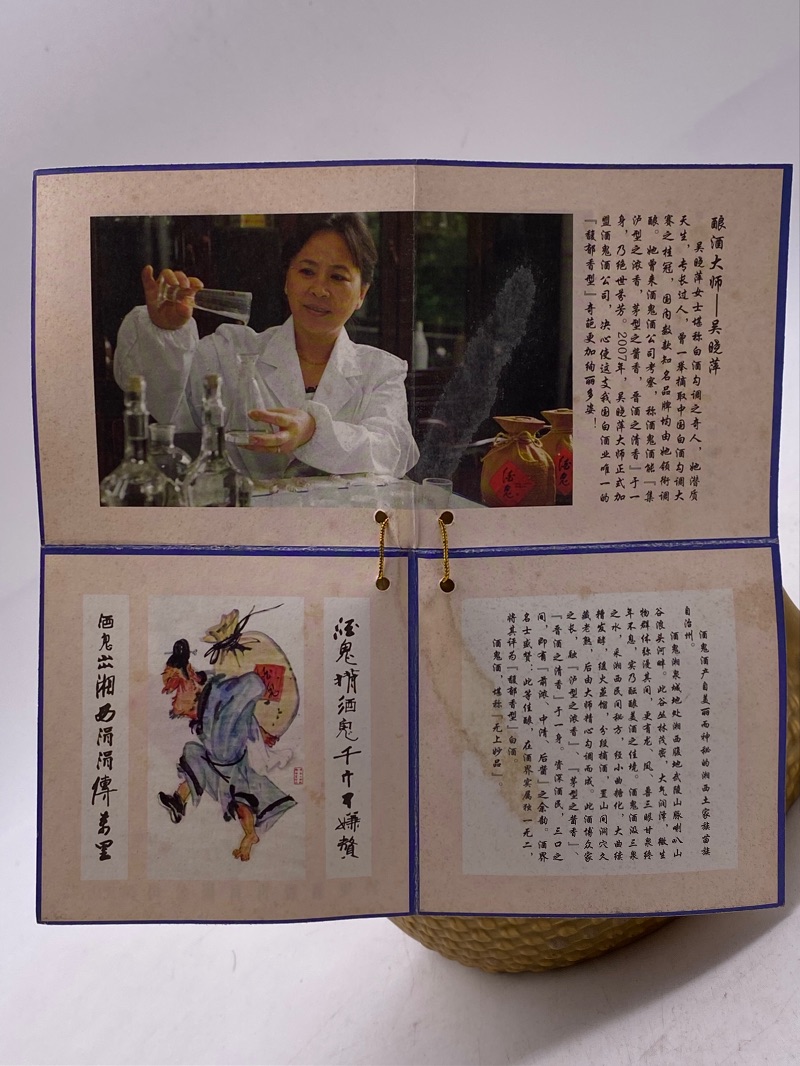 酿酒大师——吴晓萍
吴晓萍女士堪称白酒勾调之奇人，她潜质
天生，专长过人，曾一举摘取中国白酒勾调大
赛之桂冠，国内数款知名品牌均由她领衔调
酿。她曾来酒鬼酒公司考察，称酒鬼酒能『集
泸型之浓香，茅型之酱香，晋酒之清香』于一
身，乃绝世芬芳。2007年，吴晓萍大师正式加
盟酒鬼酒公司，决心使这支我国白酒业唯一的
『馥郁香型』奇葩更加绚丽多姿！
酒鬼
酒鬼
酒鬼背酒鬼千斤不嫌赘
酒鬼
酒鬼出湘西涓涓傳万里
酒鬼酒产自美丽而神秘的湘西土家族苗族
自治州。
酒鬼湘泉城地处湘西腹地武陵山脉喇叭山
谷浪头河畔。此谷丛林茂密，大气润泽，微生
物群体弥漫其间，更有龙、凤、兽三眼甘泉终
年不息，实乃酝酿美酒之佳境。酒鬼酒汲三泉
之水，采湘西民间秘方，经小曲糖化，大曲续
糟发酵，缓火蒸馏，分段摘酒，置山间洞穴久
藏老熟，后由大师精心勾调而成。此酒博众家
之长，融『泸型之浓香』、『茅型之酱香』、
『晋酒之清香』于一身。资深酒民，三口之
间，即有『前浓、中清、后酱』之余韵。酒界
名士盛赞：此等佳酿，在酒界实属独一无二，
将其评为『馥郁香型』白酒。
酒鬼酒，堪称『无上妙品』